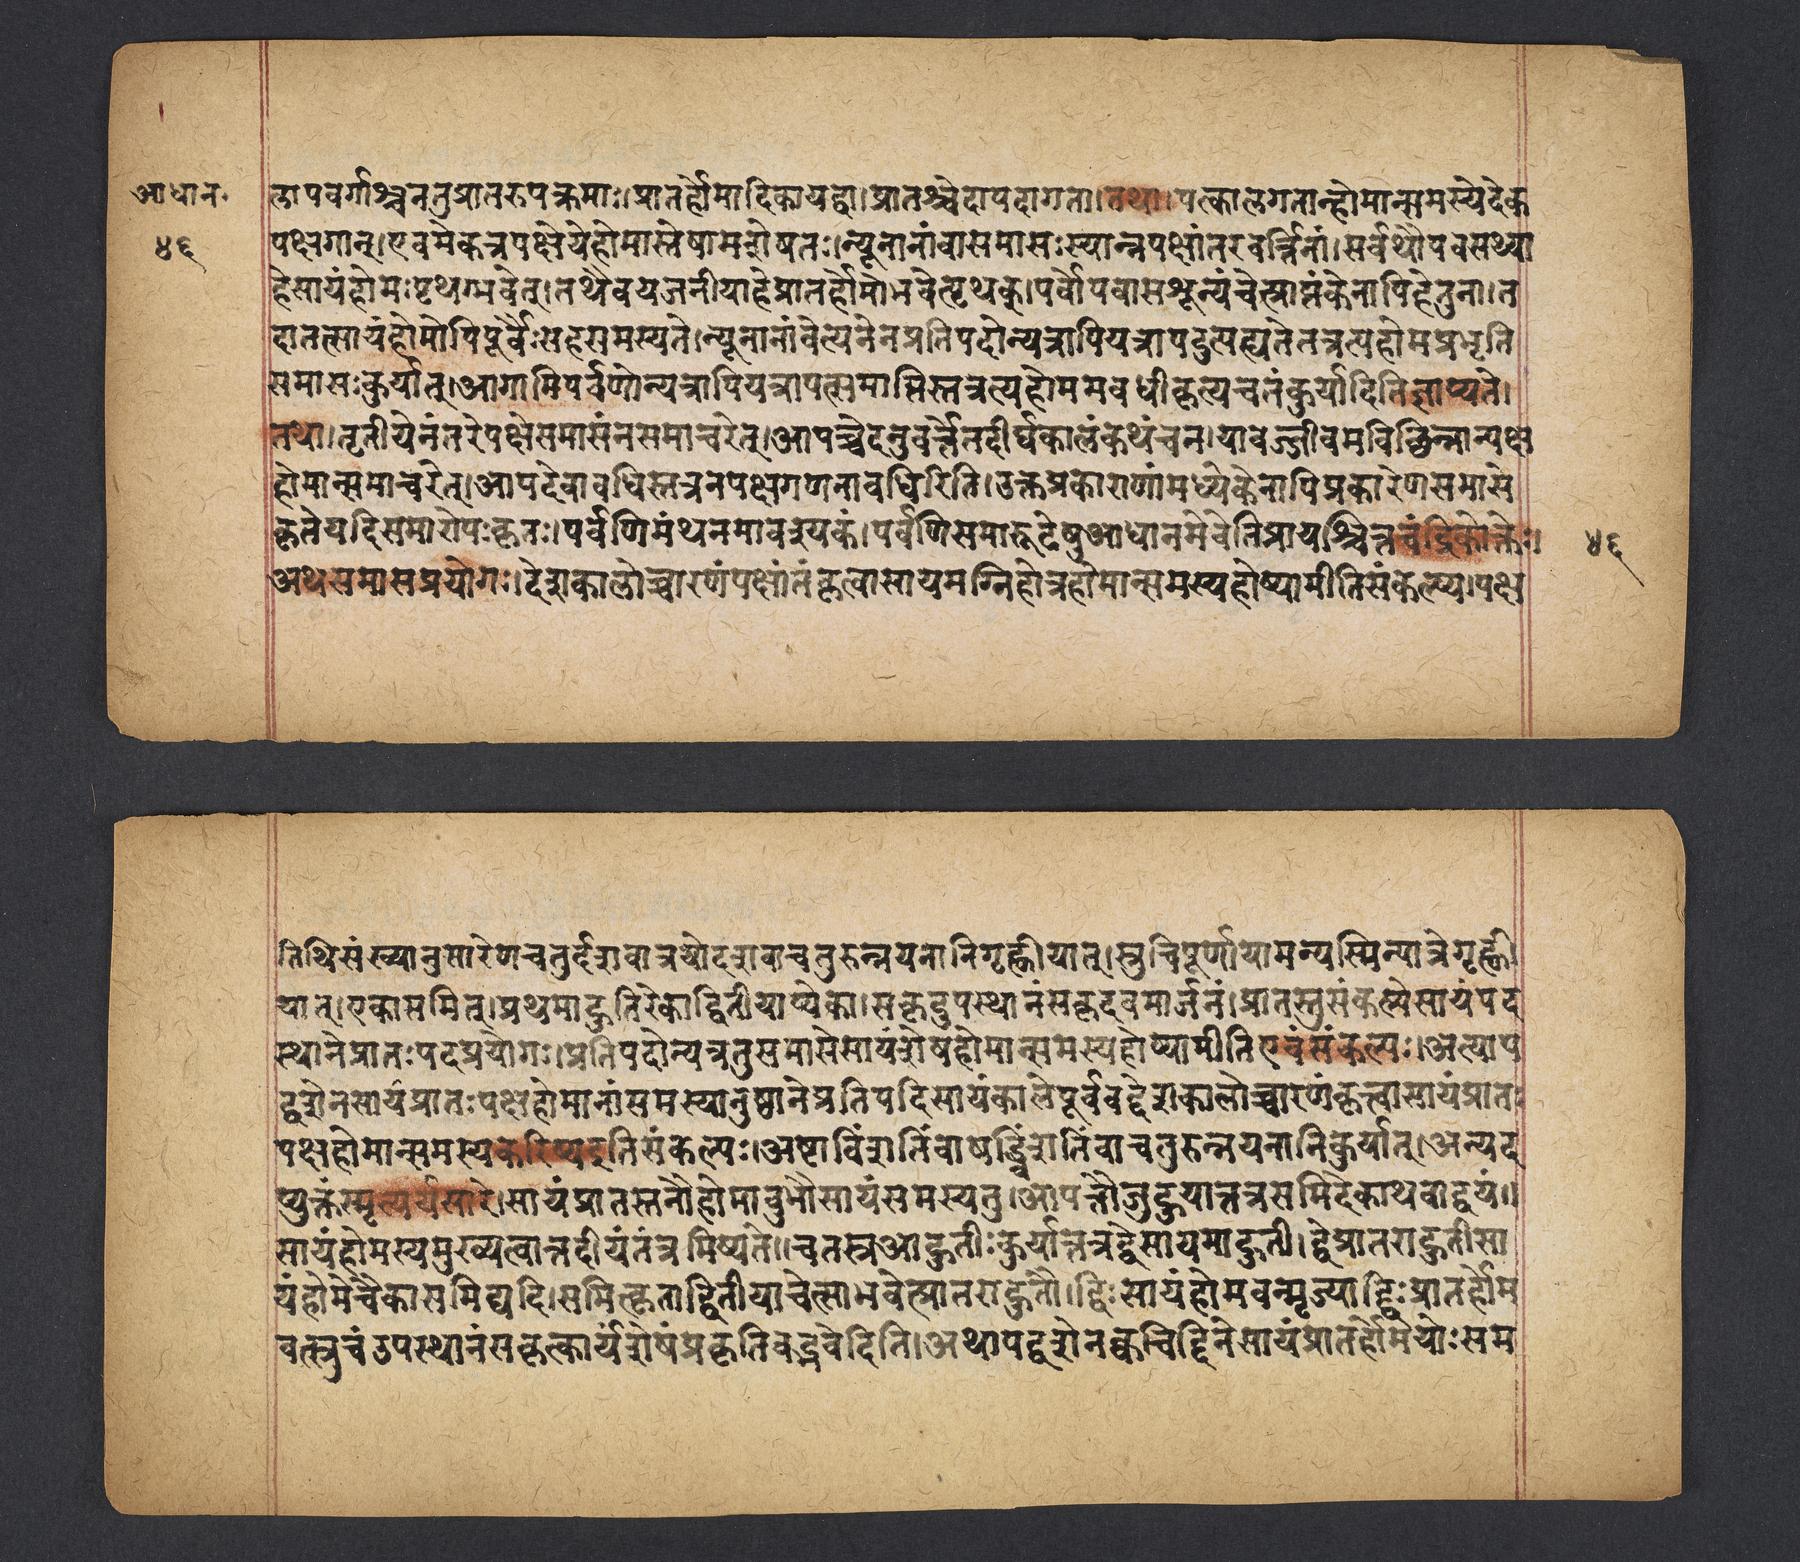 आधान॰
४६
त्तापवर्गाश्चननुप्रातरुपक्रमाः।प्रातर्होमादिकायद्वा।प्रातश्चेदापदागता।तथा।पत्कालगतान्होमान्समस्येदेक
पक्षगान्।एवमेकत्रपक्षेयेहोमास्तेषामशेषतः।न्यूनानांवासमासःस्यान्नपक्षांतरवर्त्तिनां।सर्वथौपवसथ्या
हेसायंहोमःपृथग्भवेत्।तथैवयजनीयाहेप्रातर्होमोभवेत्पृथक्।पर्वोपवासशून्यंचेत्प्राप्तंकेनापिहेतुना।त
दातत्सायंहोमोपिपूर्वैःसहसमस्यते।न्यूनानांवेत्यनेनप्रतिपदोन्यत्रापियत्रापदुत्पद्यतेतत्रत्यहोमप्रभृति
समासःकुर्यात्।आगामिपर्वणोन्यत्रापियत्रापत्समाप्तिस्तत्रत्यहोममवधीकृत्यचतंकुर्यादितिज्ञाप्यते।
तथा।तृतीयेनंतरेपक्षेसमासंनसमाचरेत्।आपच्चेदनुवर्त्तेतदीर्घकालंकथंचन।यावज्जीवमविच्छिन्नान्पक्ष
होमान्समाचरेत्।आपदेवावधिस्तत्रनपक्षगणनावधिरिति।उक्तप्रकाराणांमध्येकेनापिप्रकारेणसमासे
कृतेयदिसमारोपःकृतः।पर्वणिमंथनमावश्यकं।पर्वणिसमारूढेषुआधानमेवेतिप्रायश्चित्तचंद्रिकोक्तेः।
४६
अथसमासप्रयोगः।देशकालोच्चारणंपक्षांतंकृत्वासायमग्निहोत्रहोमान्समस्यहोष्यामीतिसंकल्प्य।पक्ष
तिथिसंख्यानुसारेणचतुर्दशवात्रयोदशवाचतुरुन्नयनानिगृह्णीयात्।स्रुचिपूर्णायामन्यस्मिन्पात्रेगृह्णी
यात्।एकासमित्।प्रथमाहुतिरेकाद्वितीयाप्येका।सकृदुपस्थानंसकृदवमार्जनं।प्रातस्तुसंकल्पेसायंपद
स्थानेप्रातःपदप्रयोगः।प्रतिपदोन्यत्रतुसमासेसायंशेषहोमान्समस्यहोष्यामीतिएवंसंकल्पः।अत्याप
द्वशेनसायंप्रातःपक्षहोमानांसमस्यानुष्ठानेप्रतिपदिसायंकालेपूर्ववद्देशकालोच्चारणंकृत्वासायंप्रातः
पक्षहोमान्समस्यकरिष्यइतिसंकल्पः।अष्टाविंशतिंवाषड्विंशतिंवाचतुरुन्नयनानिकुर्यात्।अन्यद
प्युक्तंस्मृत्यर्थसारे।सायंप्रातस्तनौहोमावुभौसायंसमस्यतु।आपन्नौजुहुयात्तत्रसमिदेकाथवाद्वयं॥
सायंहोमस्यमुख्यत्वात्तदीयंतंत्रमिष्यते॥चतस्रआहुतीःकुर्यात्तत्रद्वेसायमाहुती।द्वेप्रातराहुतीसा
यंहोमेचैकासमिद्यदि।समित्कृताद्वितीयाचेत्साभवेत्प्रातराहुतौ।द्विःसायंहोमवन्मृज्याद्द्विःप्रातर्होम
वत्स्रुचंउपस्थानंसकृत्कार्यंशेषंप्रकृतिवद्भवेदिति।अथापद्वशेनक्वचिद्दिनेसायंप्रातर्होमयोःसम